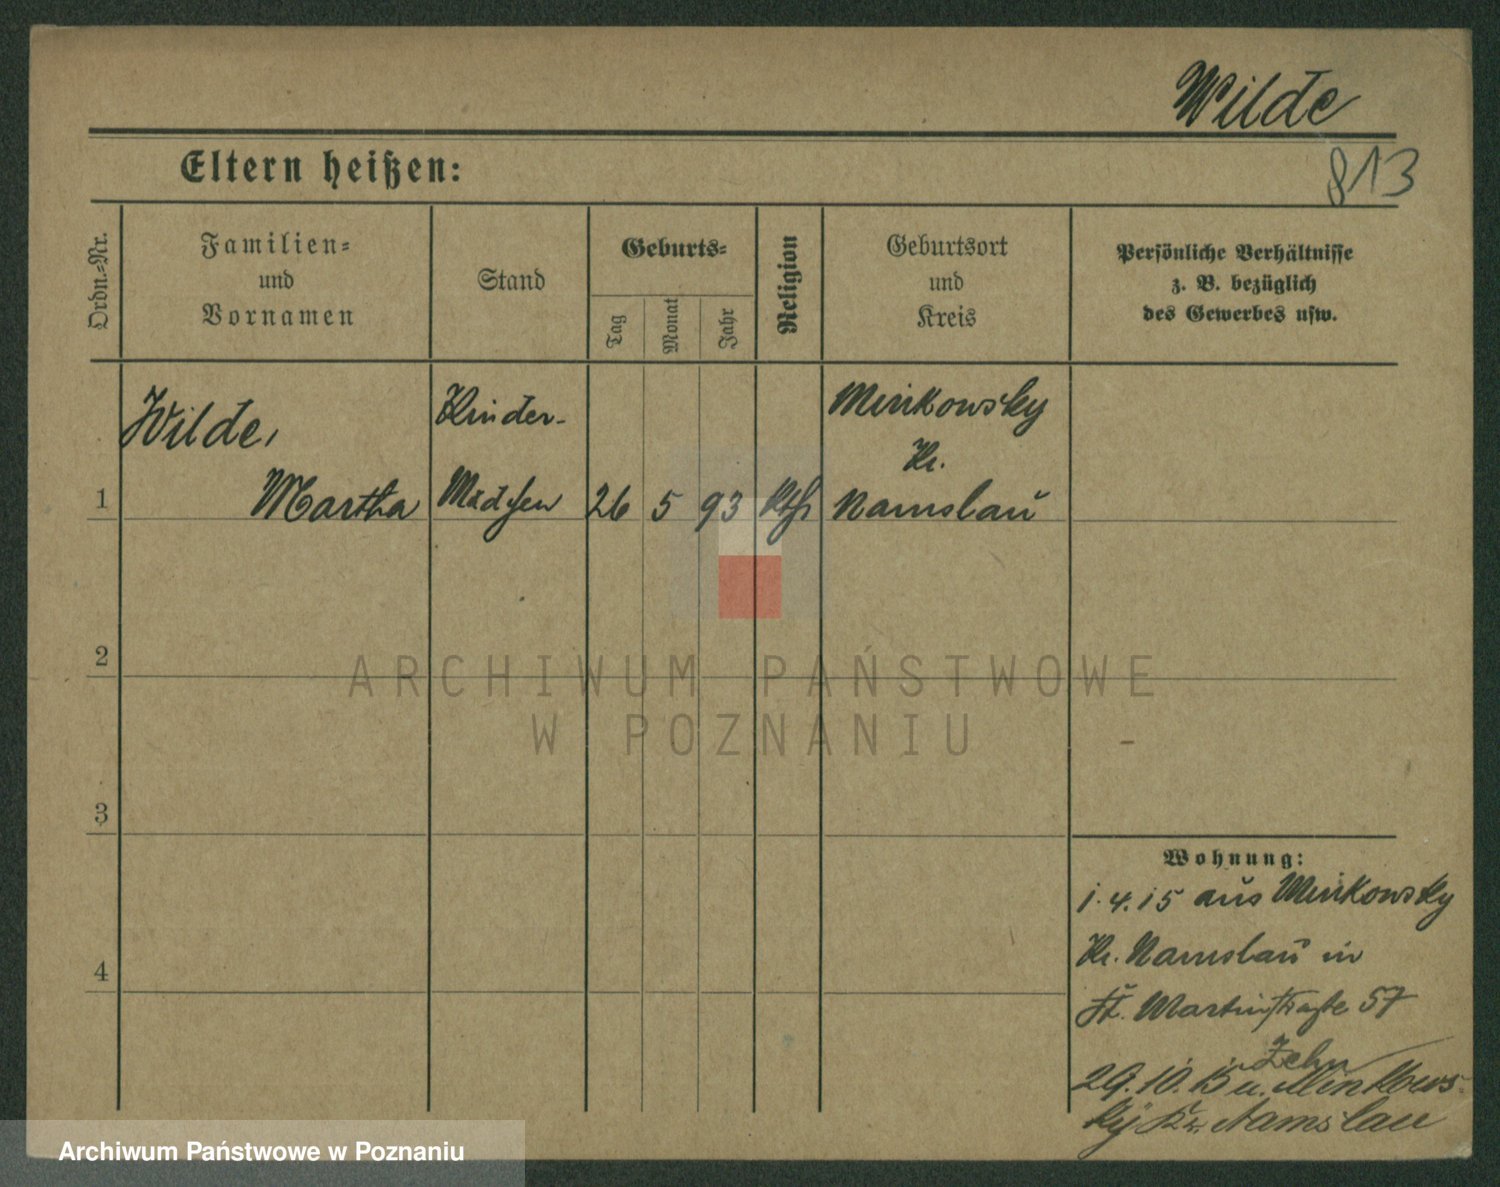 Wilde
813
Eltern heißen:
Ordn.-Nr.
Familien-
und
Vornamen
Stand
Geburts-
Tag
Monat
Jahr
Religion
Geburtsort
und
Kreis
Persönliche Verhältnisse
z. B. bezüglich
des Gewerbes usw.
Wilde,
Martha
Kinder-
Mädchen
26 5 93 kth
Minkowsky
Kr.
Namslau
1
2
3
4
Wohnung:
1.4.15 aus Minkowsky
Kr. Namslau in
St. Martinstraße 57
Zehn
29.10.15 n. Minkows-
ky Kr. Namslau
ARCHIWUM PAŃSTWOWE
W POZNANIU -
Archiwum Państwowe w Poznaniu